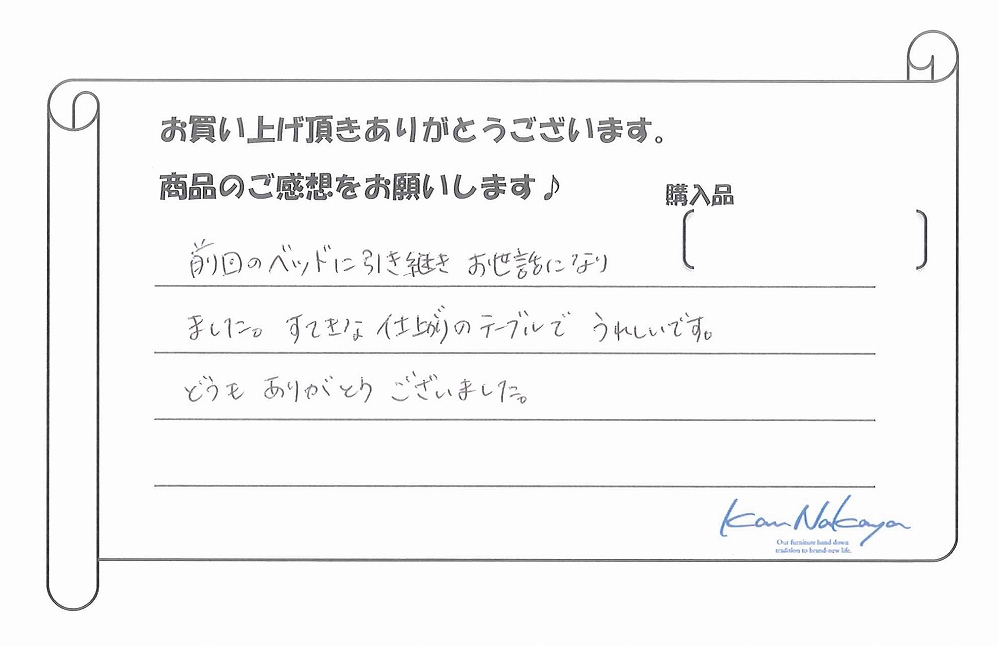 お買い上げ頂きありがとうございます。
商品のご感想をお願いします♪
購入品
前回のベッドに引き継き お世話になり
ました。 すてきな 仕上がりのテーブルで うれしいです。
どうも ありがとう ございました。
Kan Nakaya
Our furniture hand down
tradition to brand-new life.